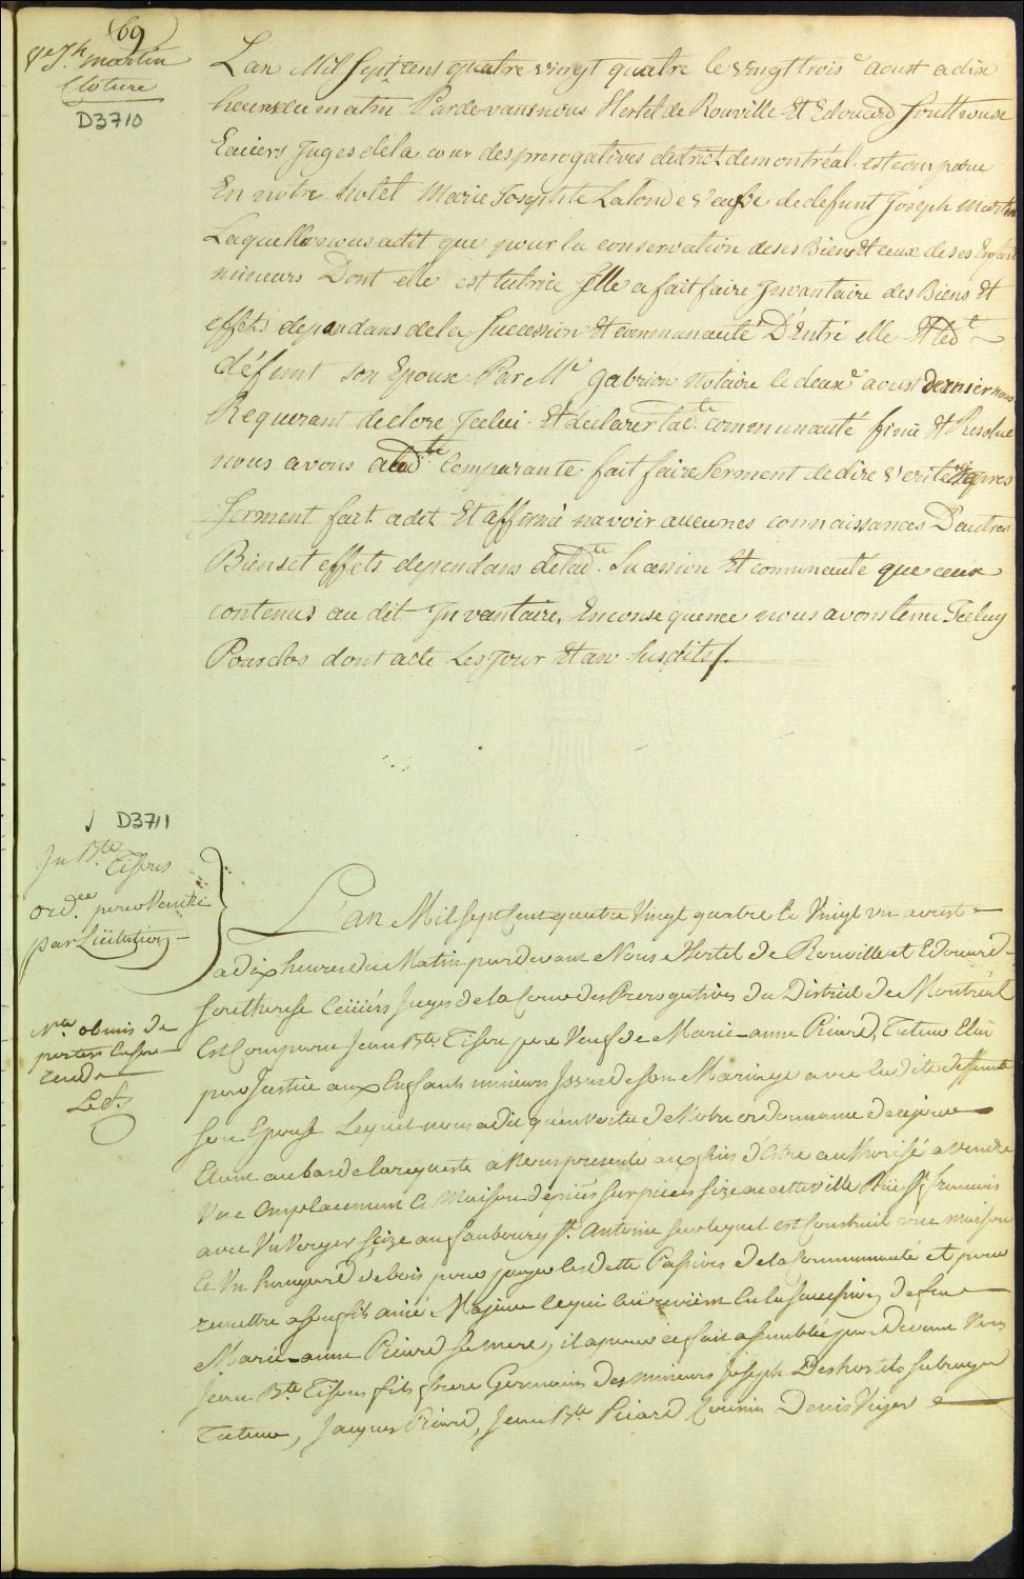 (69)
Ve Jh. martin
Cloture
D3710
Lan Mil sept cent quatre vingt quatre le vingt trois e aoust a dix
heures du matin Pardevant nous Hertel de Rouville Et Edouard Southouse
Ecuiers Juges de la cour des prerogatives district de montréal est comparue
En notre hotel Marie Josephte Lalonde veuve de defunt Joseph Martin
Laquelle nous a dit que pour la conservation de ses Biens Et ceux de ses Enfant
mineurs Dont elle est tutrice Elle a fait faire Invantaire des Biens Et
effets dependans de la Succession Et communauté D'Entre elle Et led.t
défunt son Epoux Par Me gabrion Notaire le deux e aoust dernier nous
Requerant de clore Jcelui Et declarer lad.te communauté finie Et Resolue
nous avons a lad.te Comparante fait faire Serment de dire verité Et apres
Serment fait a dit Et affirmé navoir aucunes connaissances D'autres
Biens et effets dependans de lad.te Sucession Et communauté que ceux
contenus au dit Invantaire, En consequence nous avons tenu Jceluy
Pour clos dont acte Les jour Et an susdits /.
D3711
Jn Bte Tifons
ord.ce pour Vendre
par Licitation
L'an Mil sept Cent quatre Vingt quatre le Vingt un aoust
a dix heures du Matin pardevant Nous Hertel de Rouville et Edouard
Southouse Ecuiers Juges de la Cour des Prerogatives du District de Montréal
Est Comparu Jean Bte Tifon pere Veuf de Marie-anne Picard, Tuteur Elu
N.ta obmis de
porter
Led.
par Justice aux Enfants mineurs Issus de son Mariage avec la dite deffunte
Son Epouse Lequel nous a dit qu'en vertu de Notre ordonnance de ce jour
Etant au bas de la requeste a Nous presenté aux fins d'Etre authorisé a vendre
Une Emplacement Et Maison de pieces sur pieces size en cette ville Rüe St francois
avec Un Verger size au faubourg St. Antoine sur lequel est Construit une maison
Et Un hangard de bois pour payer les dette Passives de la Communauté et pour
remettre a son fils ainé Majeur ce qui lui revient En la Succession de feue
Marie-anne Picard sa mere, il a pour ce fait assemblée par devant Nous
Jean Bte Tifons fils frere Germain des mineurs Joseph Deshostels subrogé
Tuteur, Jacques Picard, Jean Bte Picard Cousin Denis Viger